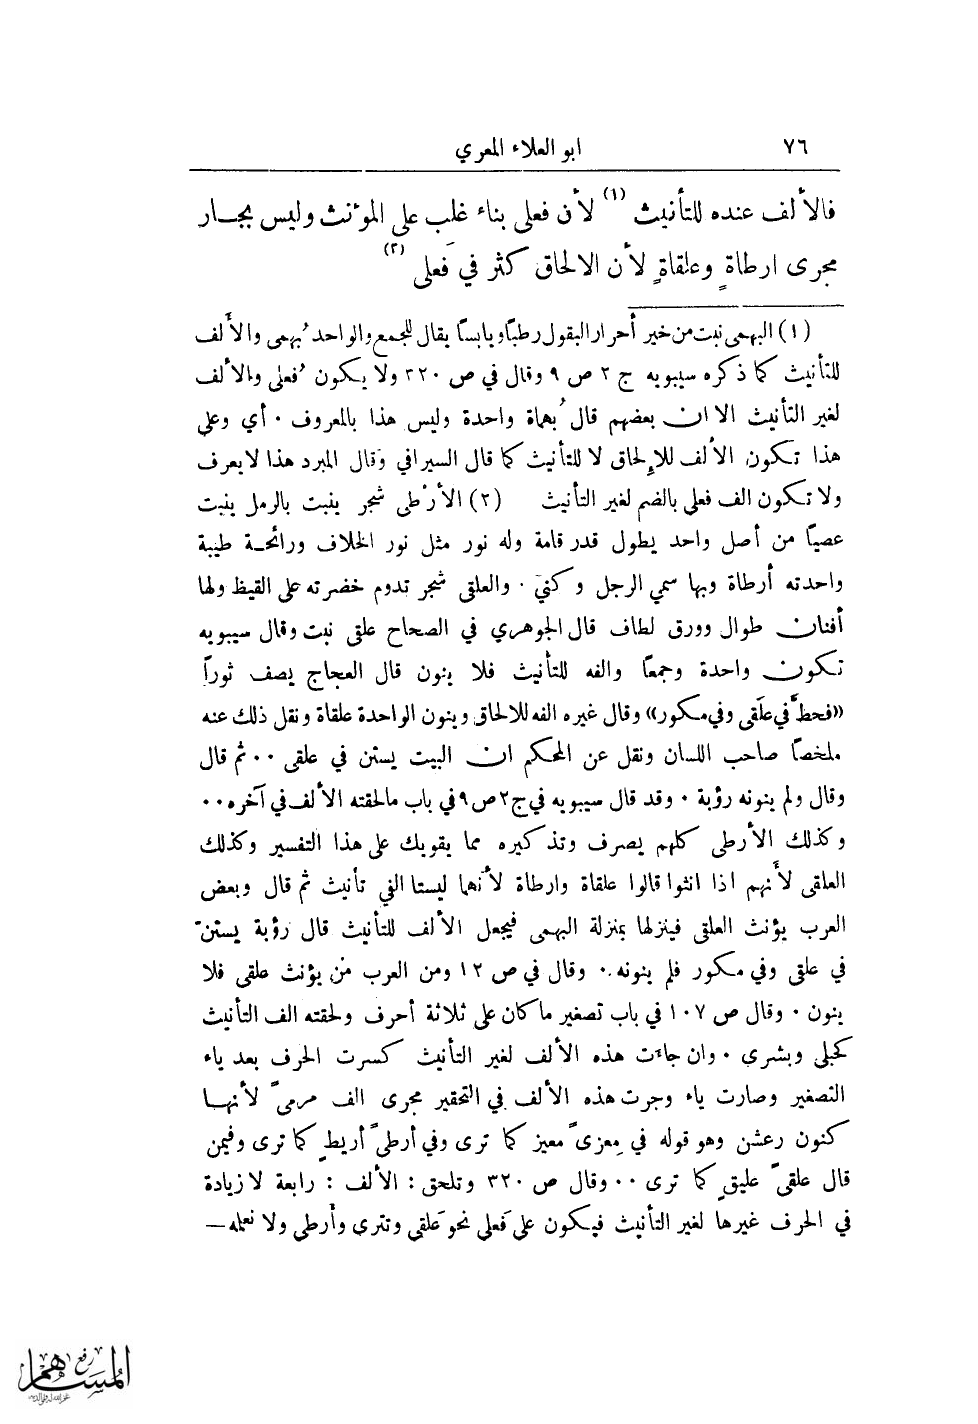 ٧٦ ابو العلاء المعري
فالألف عنده للتأنيث (١) لأن فعلى بناء غلب على المؤنث وليس بجار
مجرى ارطاةٍ وعلقاةٍ لأن الالحاق كثر في فَعلى (٢)
(١) البهمى نبت من خير أحرار البقول رطبًا ويابسًا يقال للجمع والواحد بُهمى والألف
للتأنيث كما ذكره سيبويه ج ٢ ص ٩ وقال في ص ٣٢٠ ولا يكون فُعلى والألف
لغير التأنيث الا ان بعضهم قال بُهماة واحدة وليس هذا بالمعروف ٠ أي وعلى
هذا تكون الألف للإلحاق لا للتأنيث كما قال السيرافي وقال المبرد هذا لا يعرف
ولا تكون الف فعلى بالضم لغير التأنيث (٢) الأرْطى شجر ينبت بالرمل ينبت
عصيًا من أصل واحد يطول قدر قامة وله نور مثل نور الخلاف ورائحة طيبة
واحدته أرطاة وبها سمي الرجل وكني ٠ والعلقى شجر تدوم خضرته على القيظ ولها
أفنان طوال وورق لطاف قال الجوهري في الصحاح علقى نبت وقال سيبويه
تكون واحدة وجمعًا والفه للتأنيث فلا ينون قال العجاج يصف ثوراً
«فحطَّ في علَقى وفي مكور» وقال غيره الفه للالحاق وينون الواحدة علقاة ونقل ذلك عنه
ملخصًا صاحب اللسان ونقل عن المحكم ان البيت يستن في علقى ٠٠ ثم قال
وقال ولم ينونه رؤبة ٠ وقد قال سيبويه في ج ٢ ص ٩ في باب مالحقته الألف في آخره ٠٠
وكذلك الأرطى كلهم يصرف وتذكيره مما يقويك على هذا التفسير وكذلك
العلقى لأنهم اذا انثوا قالوا علقاة وارطاة لأنهما ليستا الفي تأنيث ثم قال وبعض
العرب يؤنث العلقى فينزلها بمنزلة البهمى فيجعل الألف للتأنيث قال رؤبة يستنّ
في علقى وفي مكور فلم ينونه ٠ وقال في ص ١٢ ومن العرب من يؤنث علقى فلا
ينون ٠ وقال ص ١٠٧ في باب تصغير ما كان على ثلاثة أحرف ولحقته الف التأنيث
كحبلى وبشرى ٠ وان جاءت هذه الألف لغير التأنيث كسرت الحرف بعد ياء
التصغير وصارت ياء وجرت هذه الألف في التحقير مجرى الف مرمىً لأنها
كنون رعشن وهو قوله في مِعزىً معيز كما ترى وفي أرطىً أريطٍ كما ترى وفيمن
قال علقىً عليقٍ كما ترى ٠٠ وقال ص ٣٢٠ وتلحق : الألف : رابعة لا زيادة
في الحرف غيرها لغير التأنيث فيكون على فَعلى نحو عَلقى وتترى وأرطى ولا نعلمه —